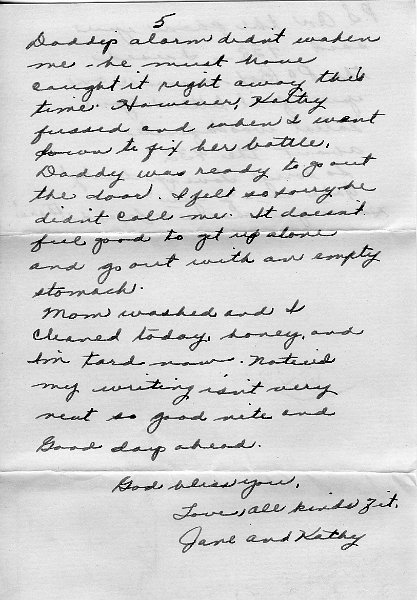 5
Daddy's alarm didnt waken
me - he must have
caught it right away this
time. However, Kathy
fussed and when I went
down to fix her bottle,
Daddy was ready to go out
the door. I felt so sorry he
didn't call me. It doesn't
feel good to get up alone
and go out with an empty
stomach.
Mom washed and I
cleaned today, honey, and
I'm tard now. Noticed
my writing isn't very
neat so good nite and
Good day ahead.
God bless you,
Love, all kinds
Jane and Kathy